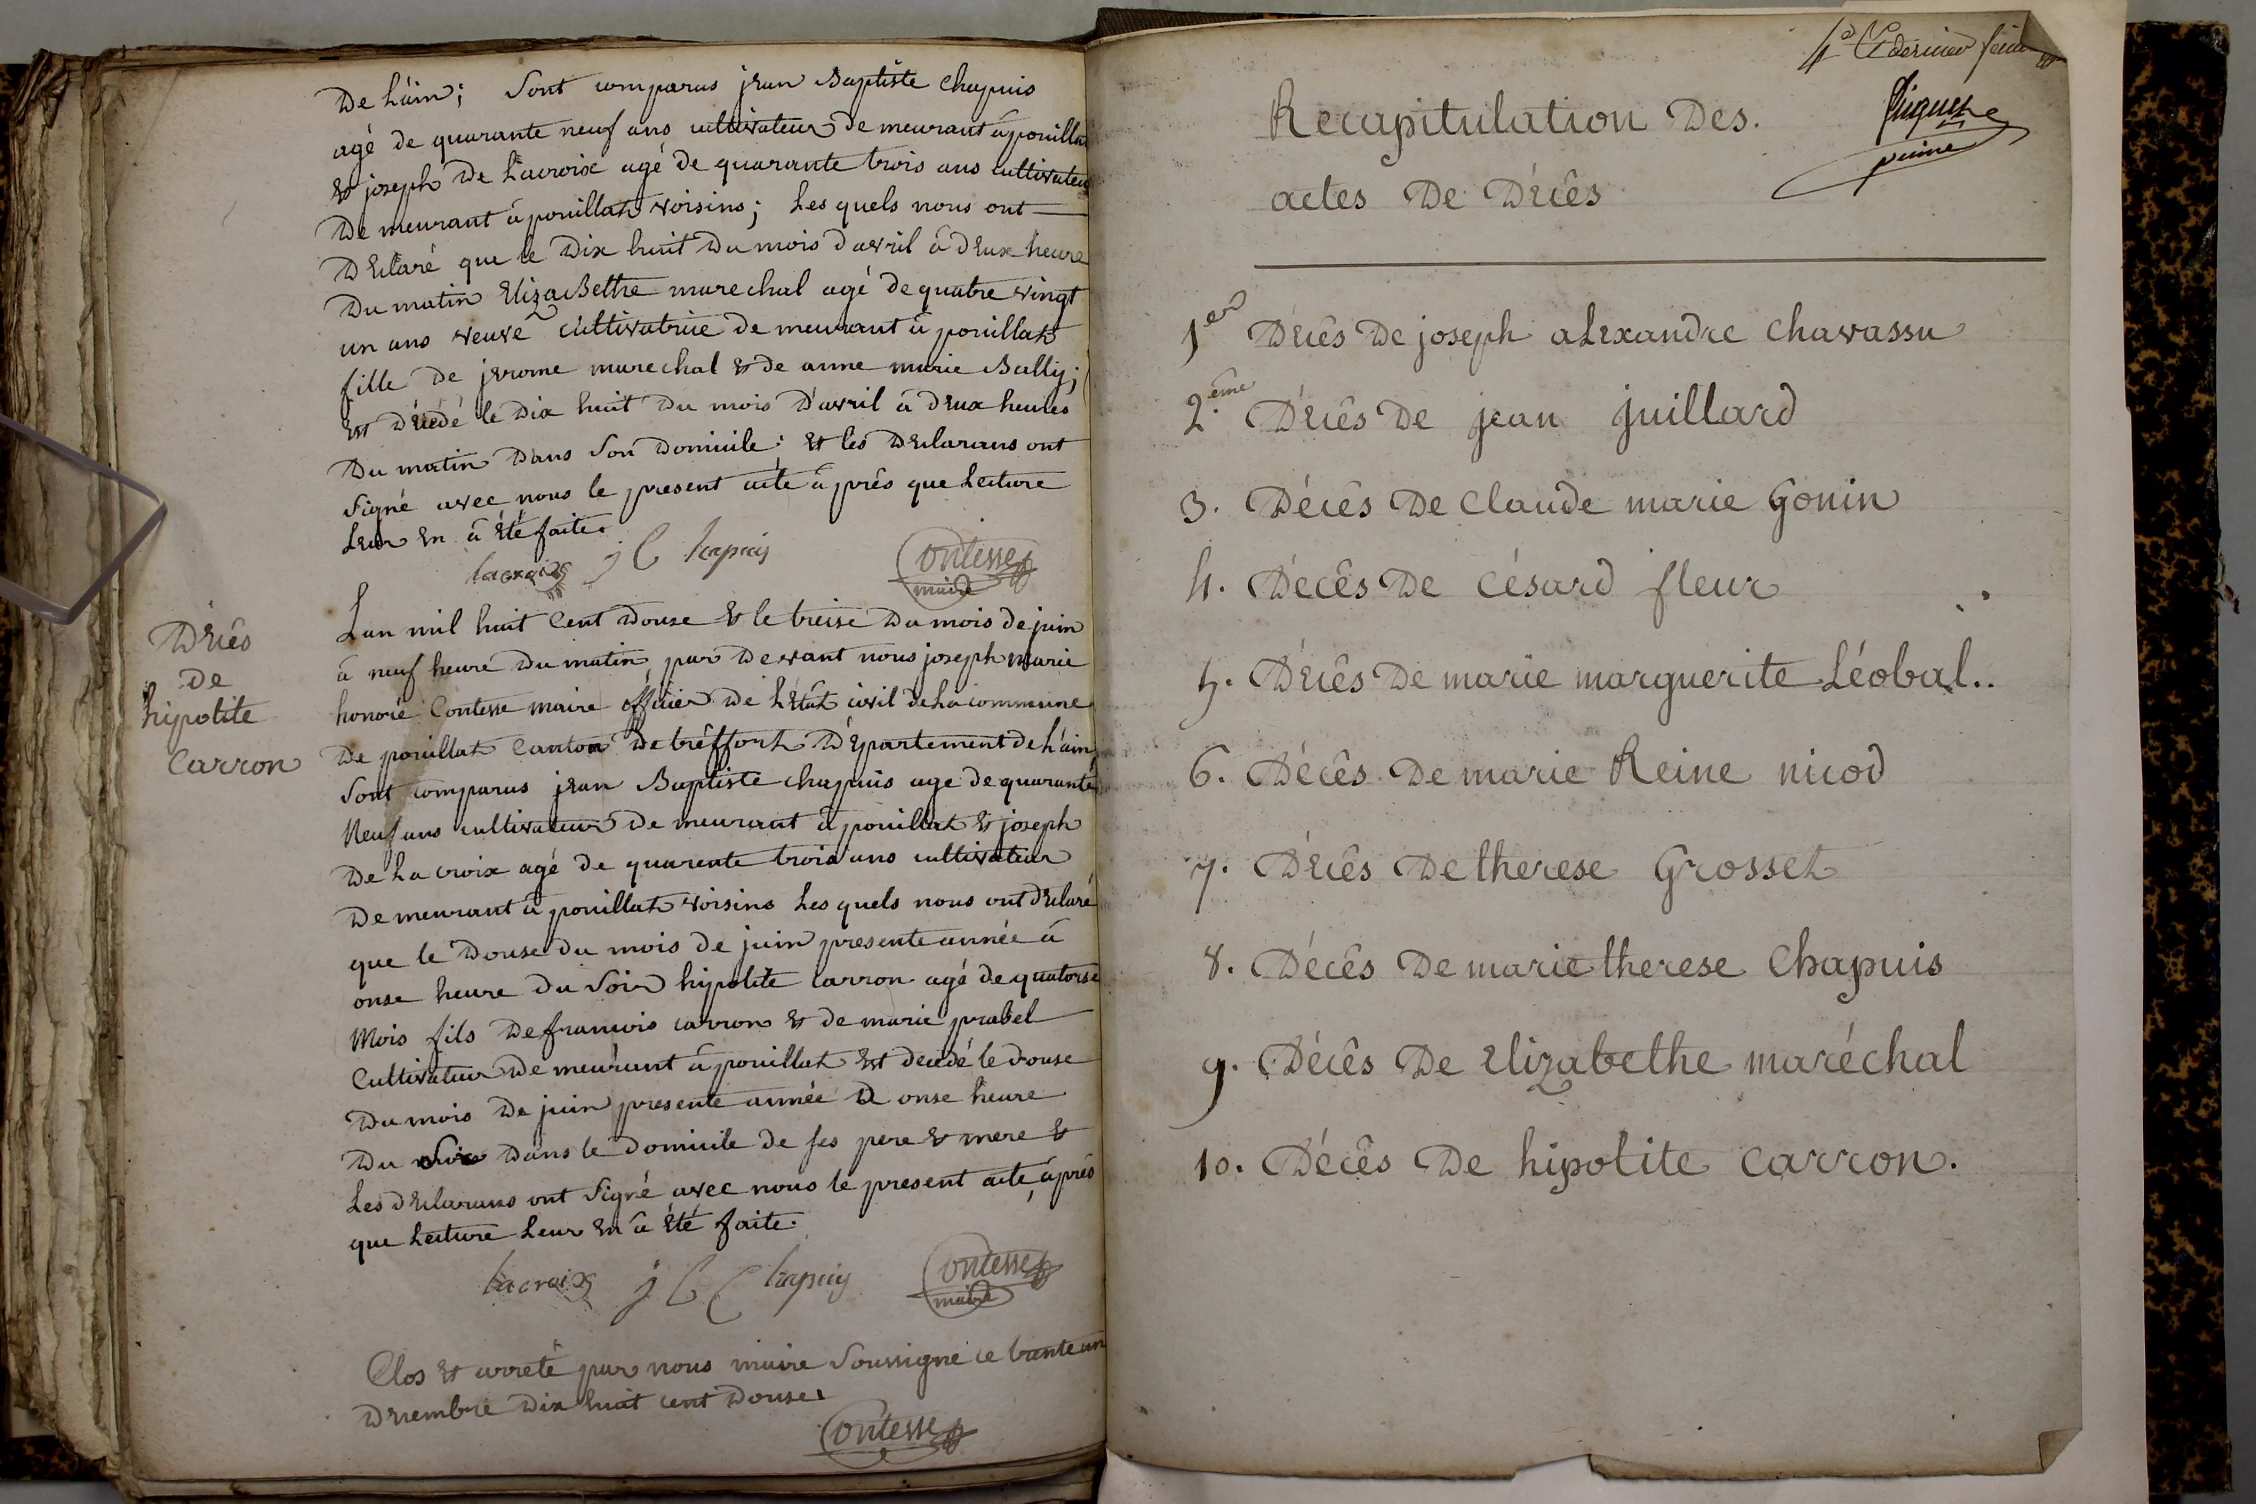 De L'ain; Sont comparus jean Baptiste Chapuis
agé de quarante neuf ans cultivateur de meurant â pouillat
Et joseph De Lacroix agé de quarante trois ans cultivateur
De meurant â pouillat voisins; Les quels nous ont
Déclaré que le Dix huit Du mois d'avril â deux heure
Du matin Elizabethe marechal agé de quatre vingt
un ans veuve cultivatrice de meurant â pouillat
fille de jerome marechal & de anne marie Bally;
Est Décédé le Dix huit Du mois D'avril â deux heures
Du matin Dans Son Domicile; Et les Declarans ont
Signé avec nous le present acte â près que Lecture
Leur En â Eté faite.
lacroix j C hapuis Contesse
maire
Décês
De
hipolite
Carron
Lan mil huit Cent Douse & le treise Du mois de juin
â neuf heure Du matin par Devant nous joseph marie
honoré Contesse maire officier De L'Etat civil de La commune
De pouillat Canton De treffort Département de L'ain
Sont comparus jean Baptiste Chapuis age de quarante
Neuf ans cultivateur De meurant â pouillat & joseph
De La croix agé de quarente trois ans cultivateur
De meurant â pouillat voisins Les quels nous ont déclaré
que le Douse du mois de juin presente année â
onse heure Du Soir hipolite Carron agé de quatorse
Mois fils De francois carron & de marie prabel
Cultivateur De meurant â pouillat Est décédé le douse
Du mois De juin presente année â onse heure
Du Soir Dans le Domicile de ses pere & mere &
Les Déclarans ont Signé avec nous le present acte, âprès
que Lecture Leur En â Eté faite.
lacroix j C Chapuis Contesse
maire
Clos Et arreté par nous maire Soussigné ce trente un
Decembre Dix huit cent Douse.
Contesse
dernier
Recapitulation Des.
actes De Décês
1er Décês De joseph aLexandre Chavassu
2.ême Décês De jean juillard
3. Décês De Claude marie Gonin
4. Décês De Césard fleur
5. Décês De marie marguerite Léobal..
6. Décês De marie Reine nicod
7. Décês De therese Grosset
8. Décês De marie therese Chapuis
9. Décês De Elizabethe maréchal
10. Décês De hipolite Carron.